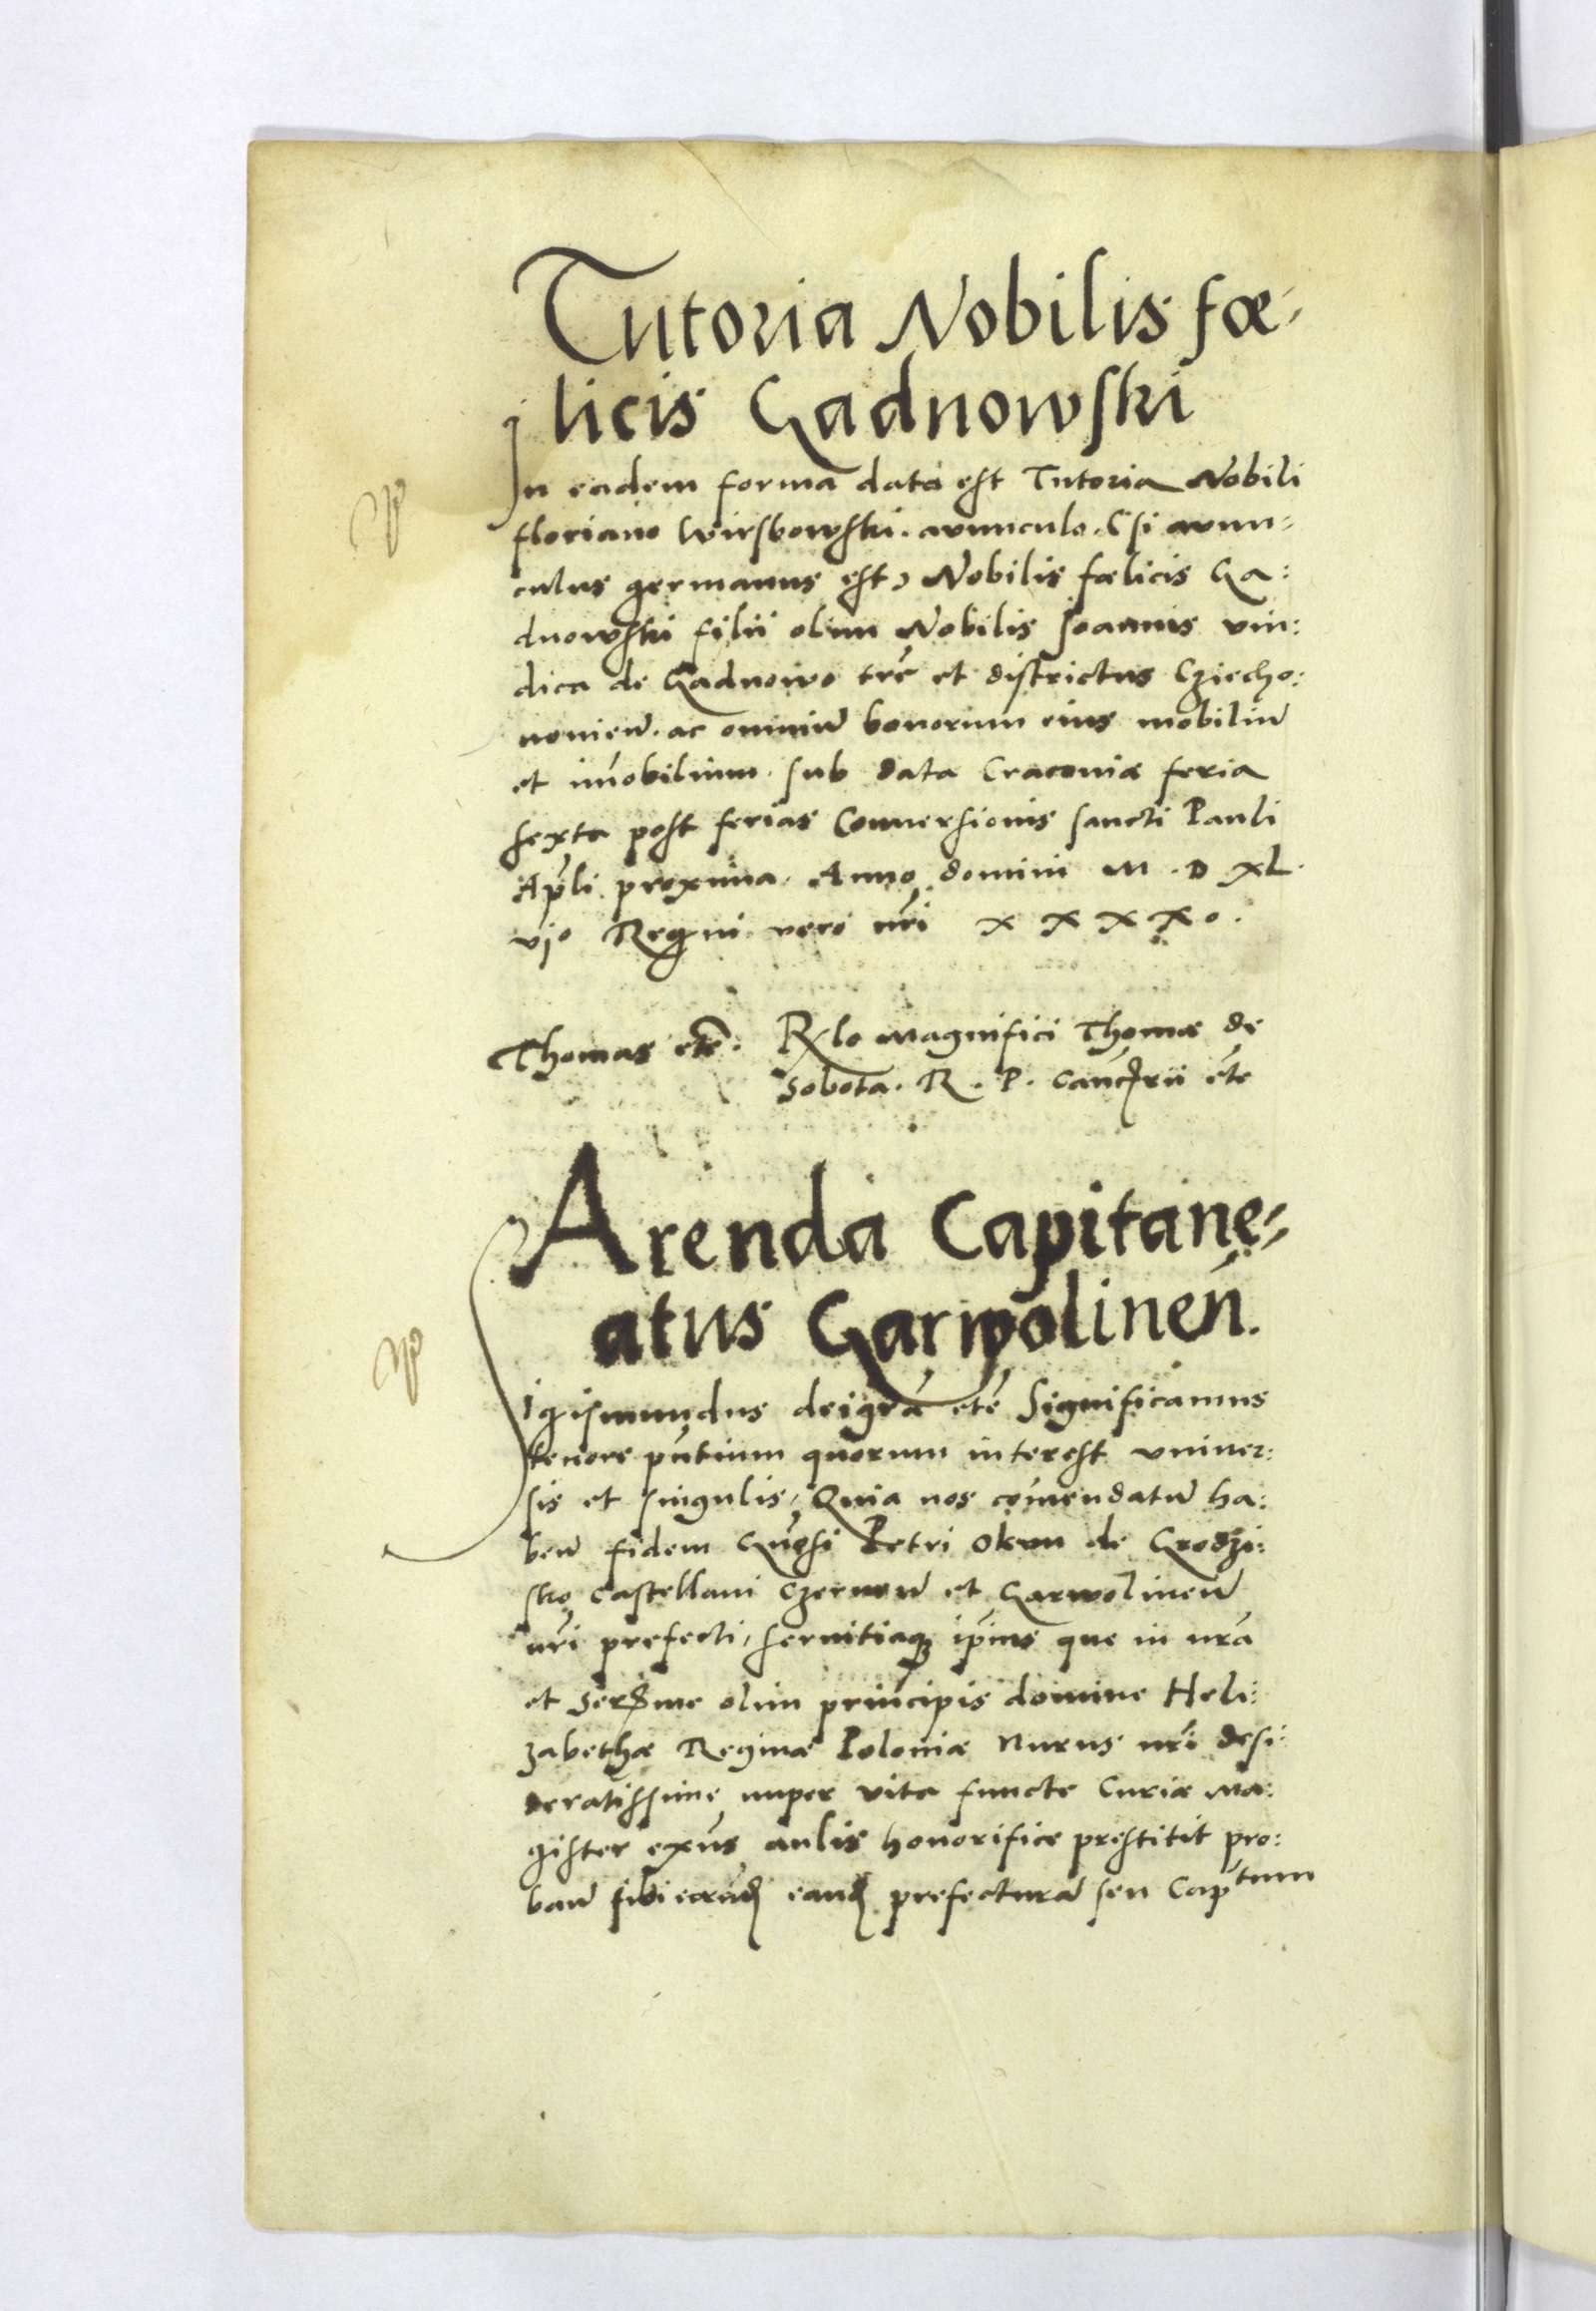 Tutoria Nobilis fœ-
licis Gadnowski
In eadem forma data est Tutoria Nobili
floriano Wirsbowski. avunculo. (si avun-
culus germanus est) Nobilis fœlicis Ga:
dnowski filii olim Nobilis Joannis vin:
dica de Gadnowo trē et districtus Cziecho:
nouien̄. ac omniū bonorum eius mobiliū
et im̄obilium. sub data Cracouiæ feria
sexta post ferias Conuersionis sancti Pauli
Ap̄li proxima. Anno domini M.D XL.
vjo Regni vero nr̄i X X X X o.
Thomas etc̄. Rlo Magnifici Thomæ de
Sobota. R. P. Canc̄rii etc̄
Arenda Capitanę-
atus Garwolinen̄.
Sigismundus dei gr̄a etc̄ Significamus
tenore pn̄tium quorum interest vniuer:
sis et singulis, Quia nos com̄endatū ha:
ben̄ fidem Gn̄osi Petri Okvn de Grodzi:
sko Castellani Czernen̄ et Garwolinen̄
nr̄i prefecti, seruitiaq ip̄ius que in nr̄a
et Ser̄me olim principis domine Heli:
zabethæ Reginæ Poloniæ Nurus nr̄i desi:
deratissime nuper vita functe Curiæ Ma:
gister ex̄ns aulis honorifice prestitit pro:
ban̄ sibi earūd eand prefecturā seu Captum